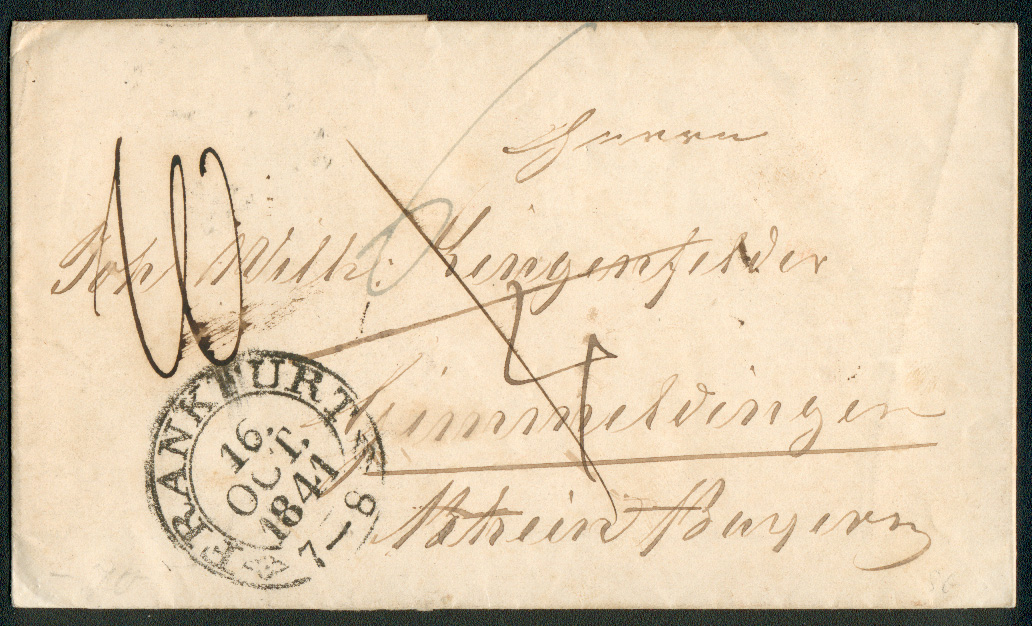 Herrn
Joh Wilh: Klingenfelder
Kimmeldingen
Rhein Bayern
FRANKFURT
16.
OCT.
1841
7-8